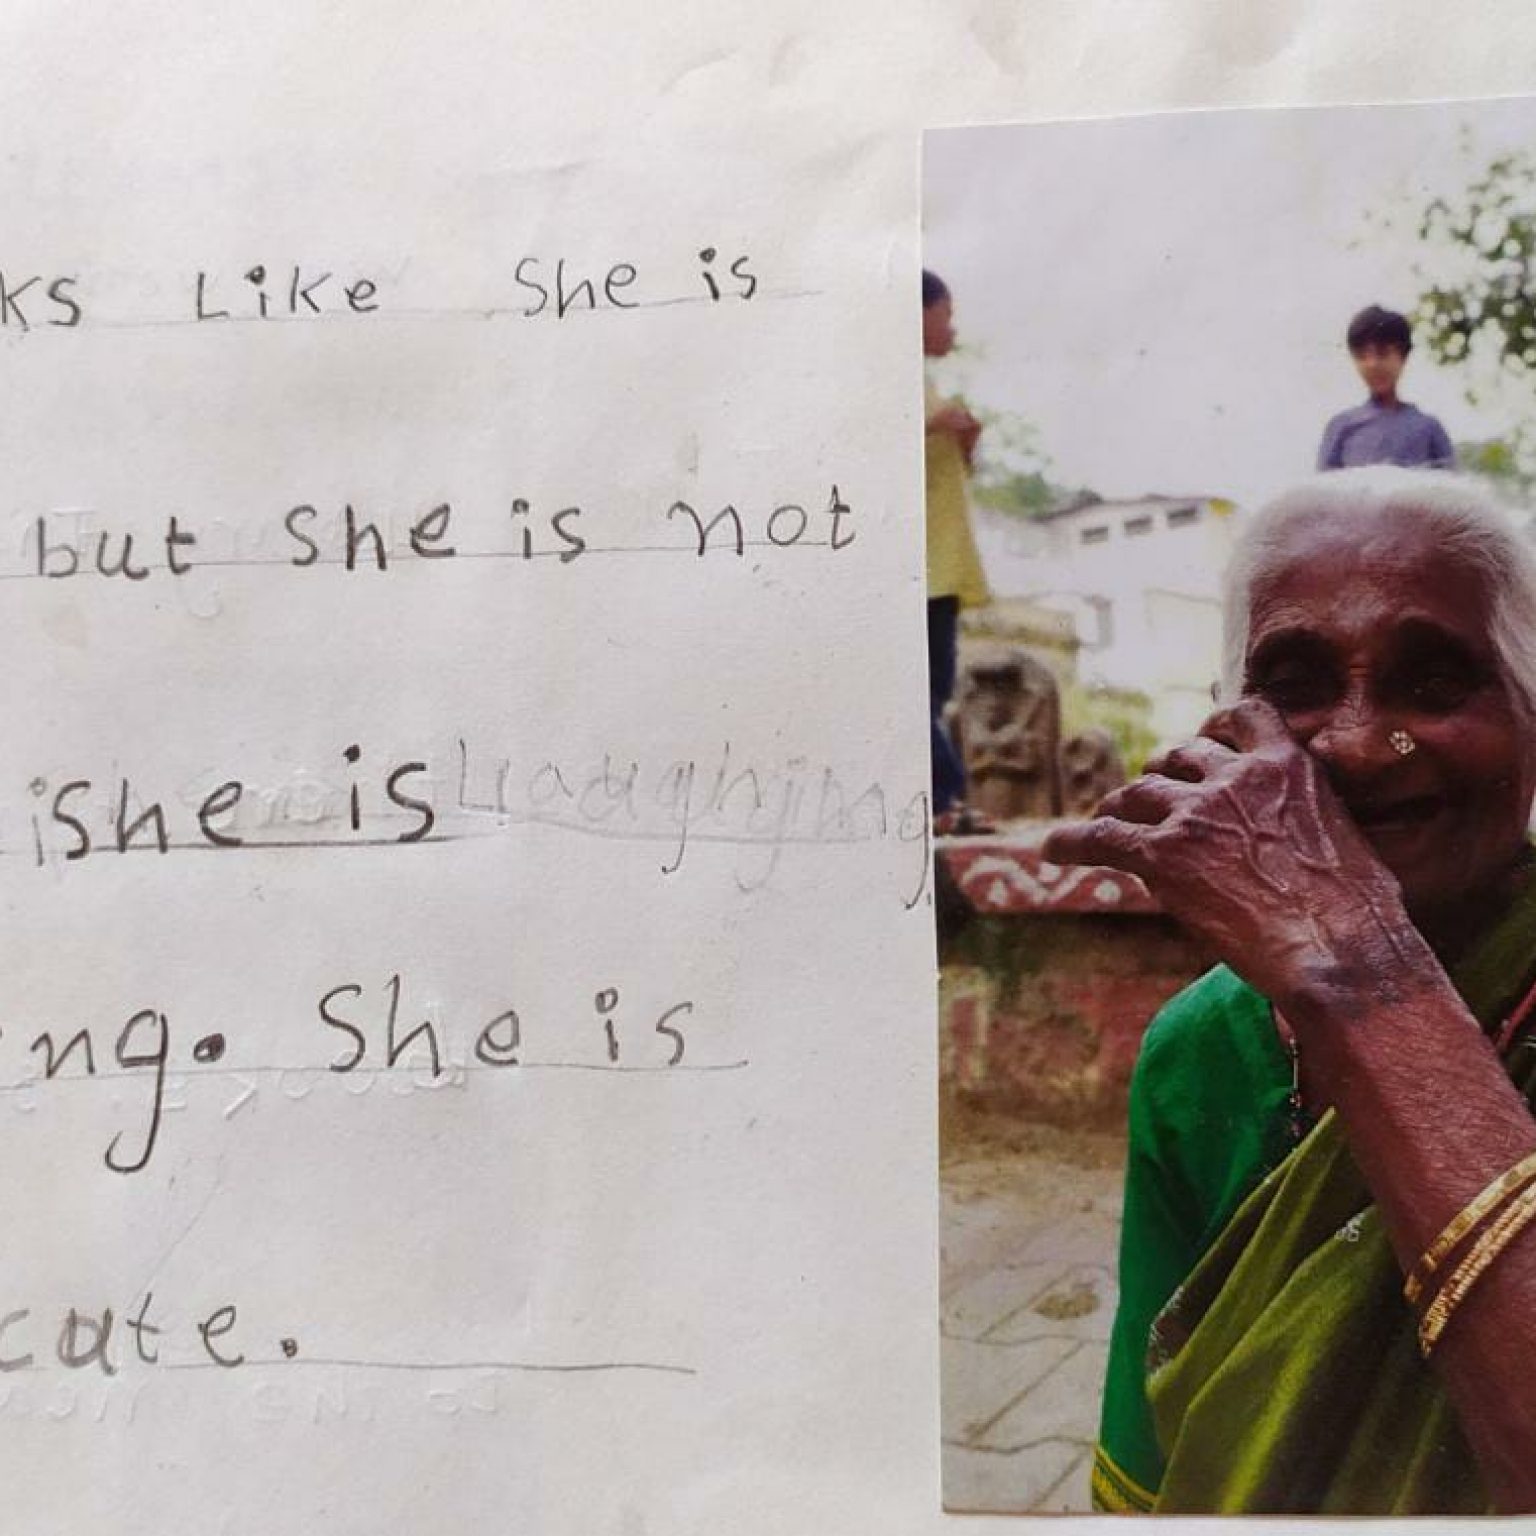 ks Like She is
but She is not
She is Laughing
ng. She is
cute.